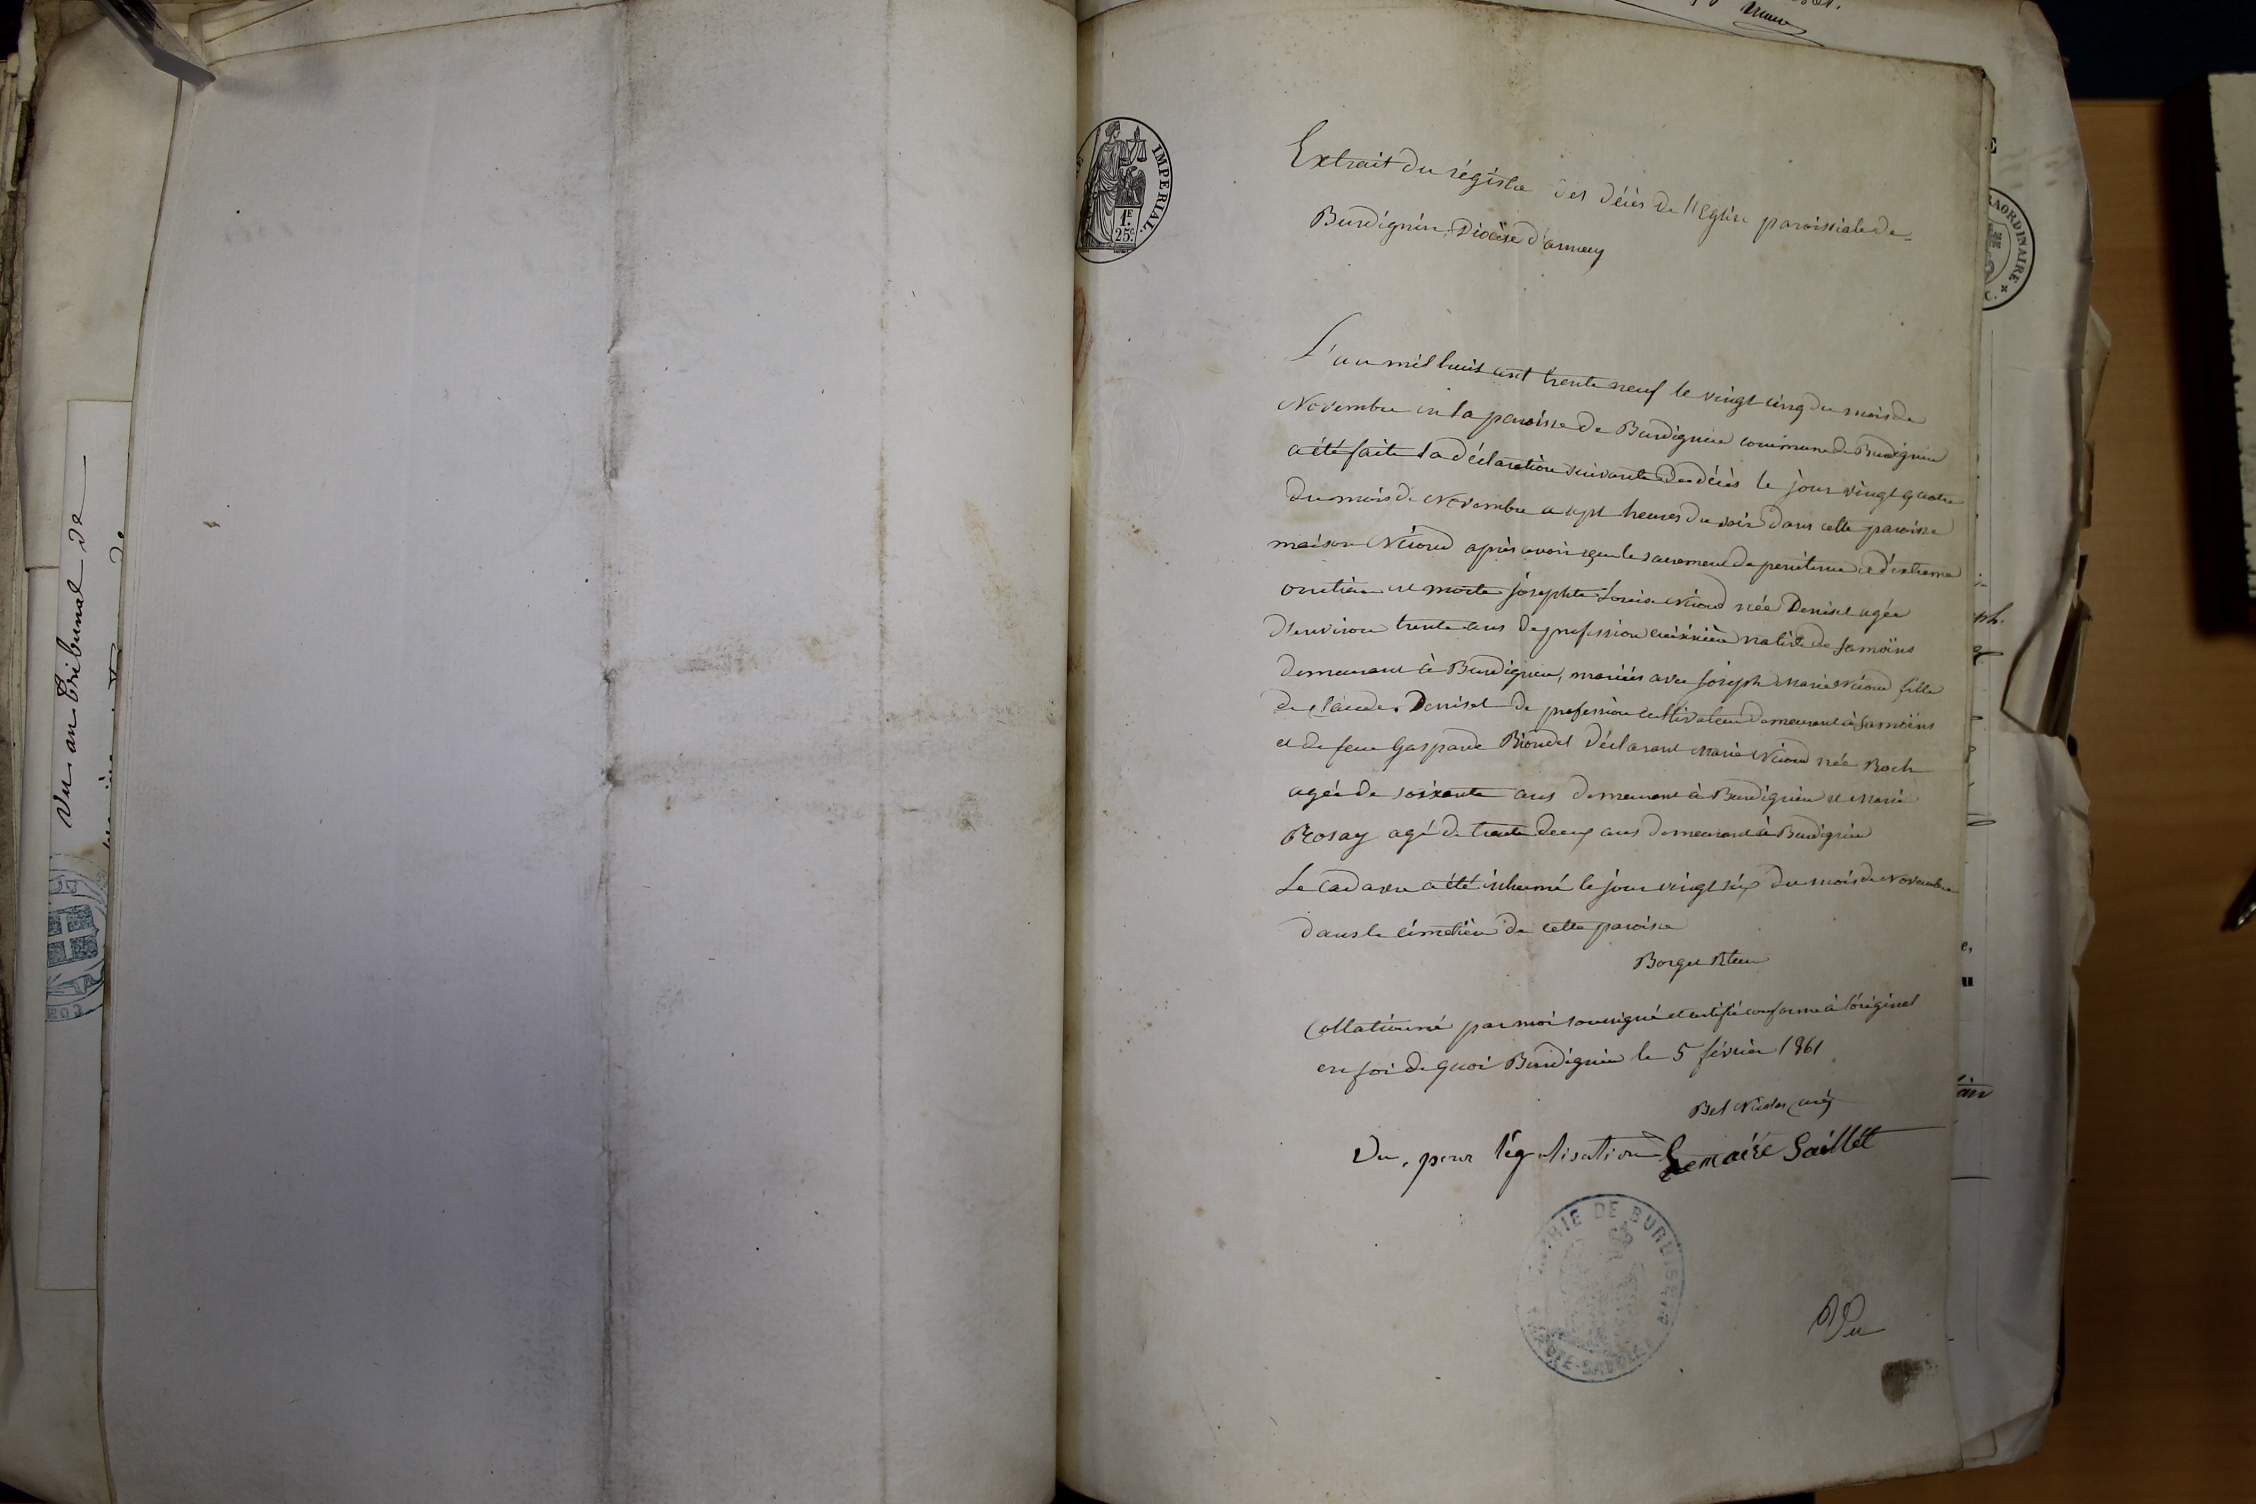 Vu au Tribunal de
IMPERIAL.
1F.
25c.
Extrait du régistre des décès de l'Eglise paroissiale de
Burdignin, Diocèse d'annecy
L'an mil huit cent trente neuf le vingt cinq du mois de
Novembre en la paroisse de Burdignin commune de Burdignin
a été faite la déclaration suivante de décès le jour vingt quatre
du mois de Novembre a sept heures du soir dans cette paroisse
maison Nicoud après avoir reçu le sacrement de penitence et d'extreme
onction est morte josephte Louise Nicoud née Denisel agée
d'environ trente ans de profession native de Samoëns
demeurant à Burdignin, mariée avec joseph Marie Nicoud fille
de Claude Denisel de profession cultivateur demeurant à Samoëns
et de feue Gasparde Biondel déclarant Marie Nicoud née Boch
agée de soixante ans demeurant à Burdignin et Marie
Rosay agé de trente deux ans demeurant à Burdignin
Le cadavre a été inhumé le jour vingt six du mois de Novembre
dans le cimetière de cette paroisse
Borget Rteur
Collationné par moi soussigné et certifié conforme à l'original
en foi de quoi Burdignin le 5 février 1861
Bel Nicolas curé
Vu, pour légalisation Le maire Saillet
MAIRIE DE BURDIGNIN
HAUTE-SAVOIE
Vu
RAORDINAIRE